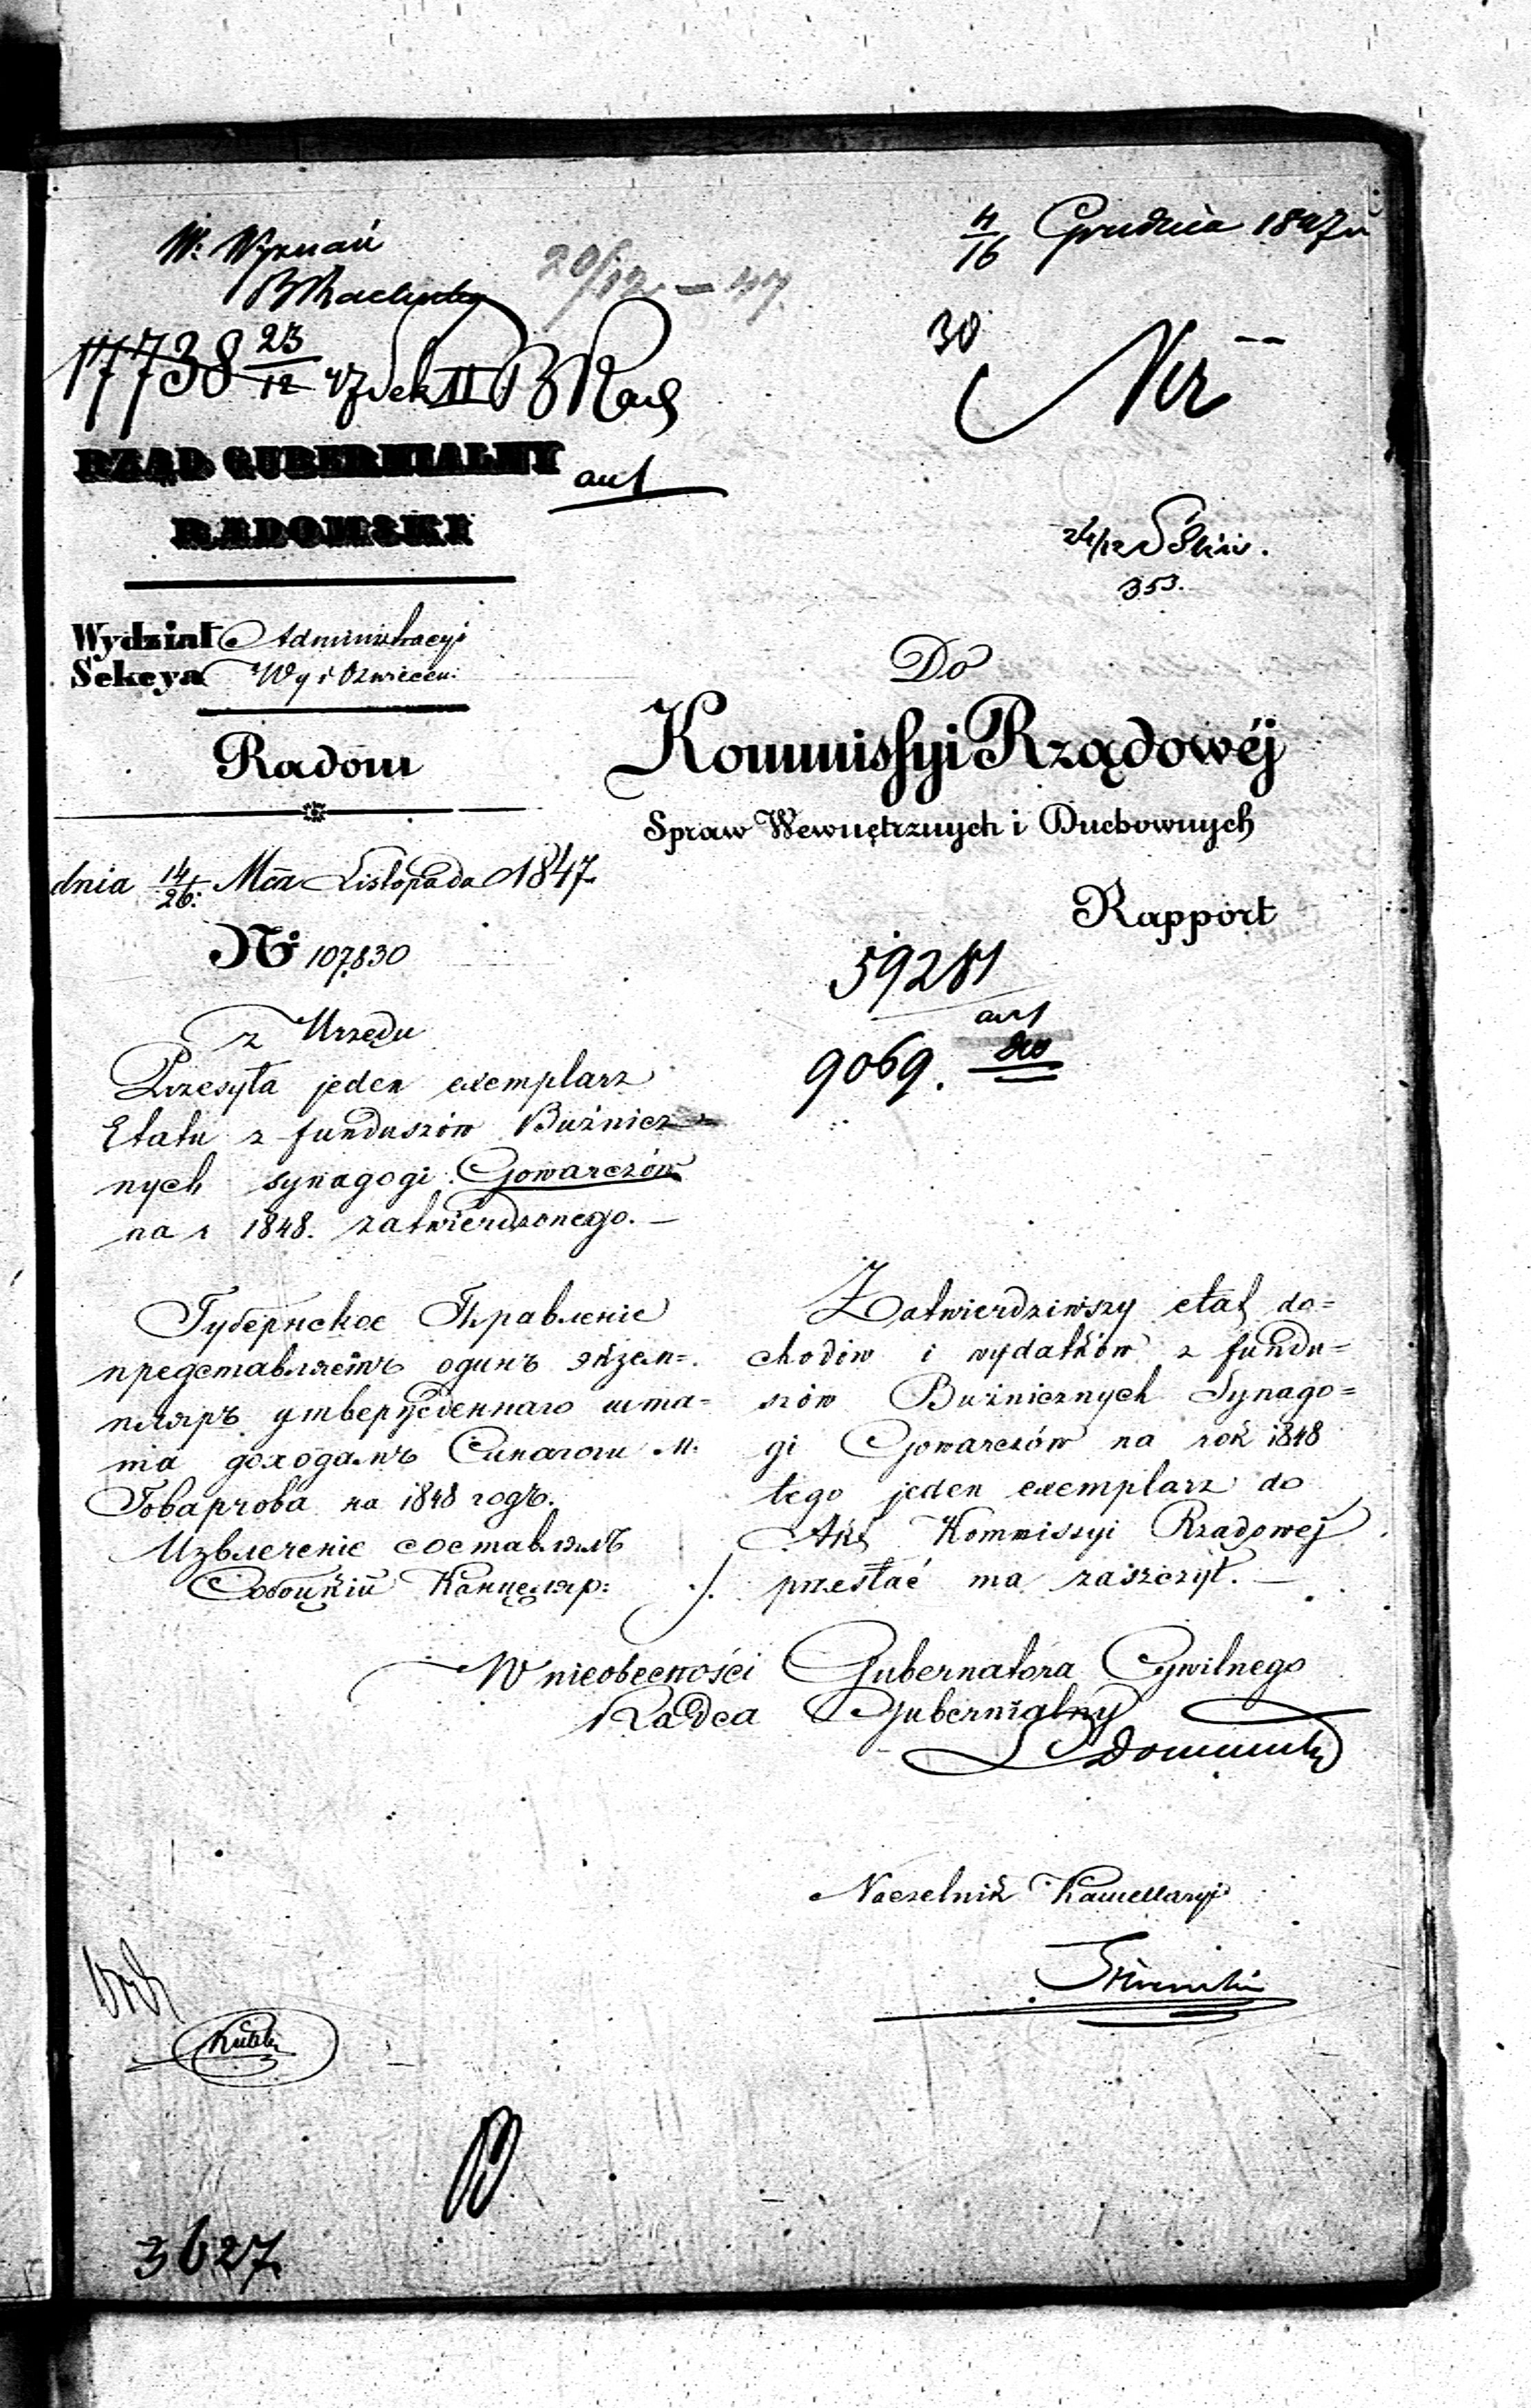 W. Wyznań
4/16 Grudnia 1847 r
20/12 – 47.
17738 23/12 47 Sek II
30
RZĄD GUBERNIALNY
ant
RADOMSKI
24/12
353.
Wydział Administracyi
Sekcya Wy i Oświecen:
Radom
Do
Kommissyi Rządowéj
Spraw Wewnętrznych i Duchownych
dnia 14/26. Mca Listopada 1847
Rapport
№ 107830
59281
ant
9069.
z Urzędu
Przesyła jeden exemplarz
Etatu z funduszów Bużnicz
nych synagogi Gowarczów
na r 1848. zatwierdzonego. —
Губернское Правленіе
представляетъ одинъ экзем=
пляръ утвержденнаго шта=
та доходамъ Синагоги м:
Говарчова на 1848 годъ.
Извлеченіе составлялъ
Собоцкій Канцеляр:
Zatwierdziwszy etat do=
chodów i wydatków z fundu=
szów Bużnicznych Synago=
gi Gowarczów na rok 1848
tego jeden exemplarz do
Akt Kommissyi Rządowej
przesłać ma zaszczyt. —
W nieobecności Gubernatora Cywilnego
Radca Gubernialny
Naczelnik Kancellaryi
3627